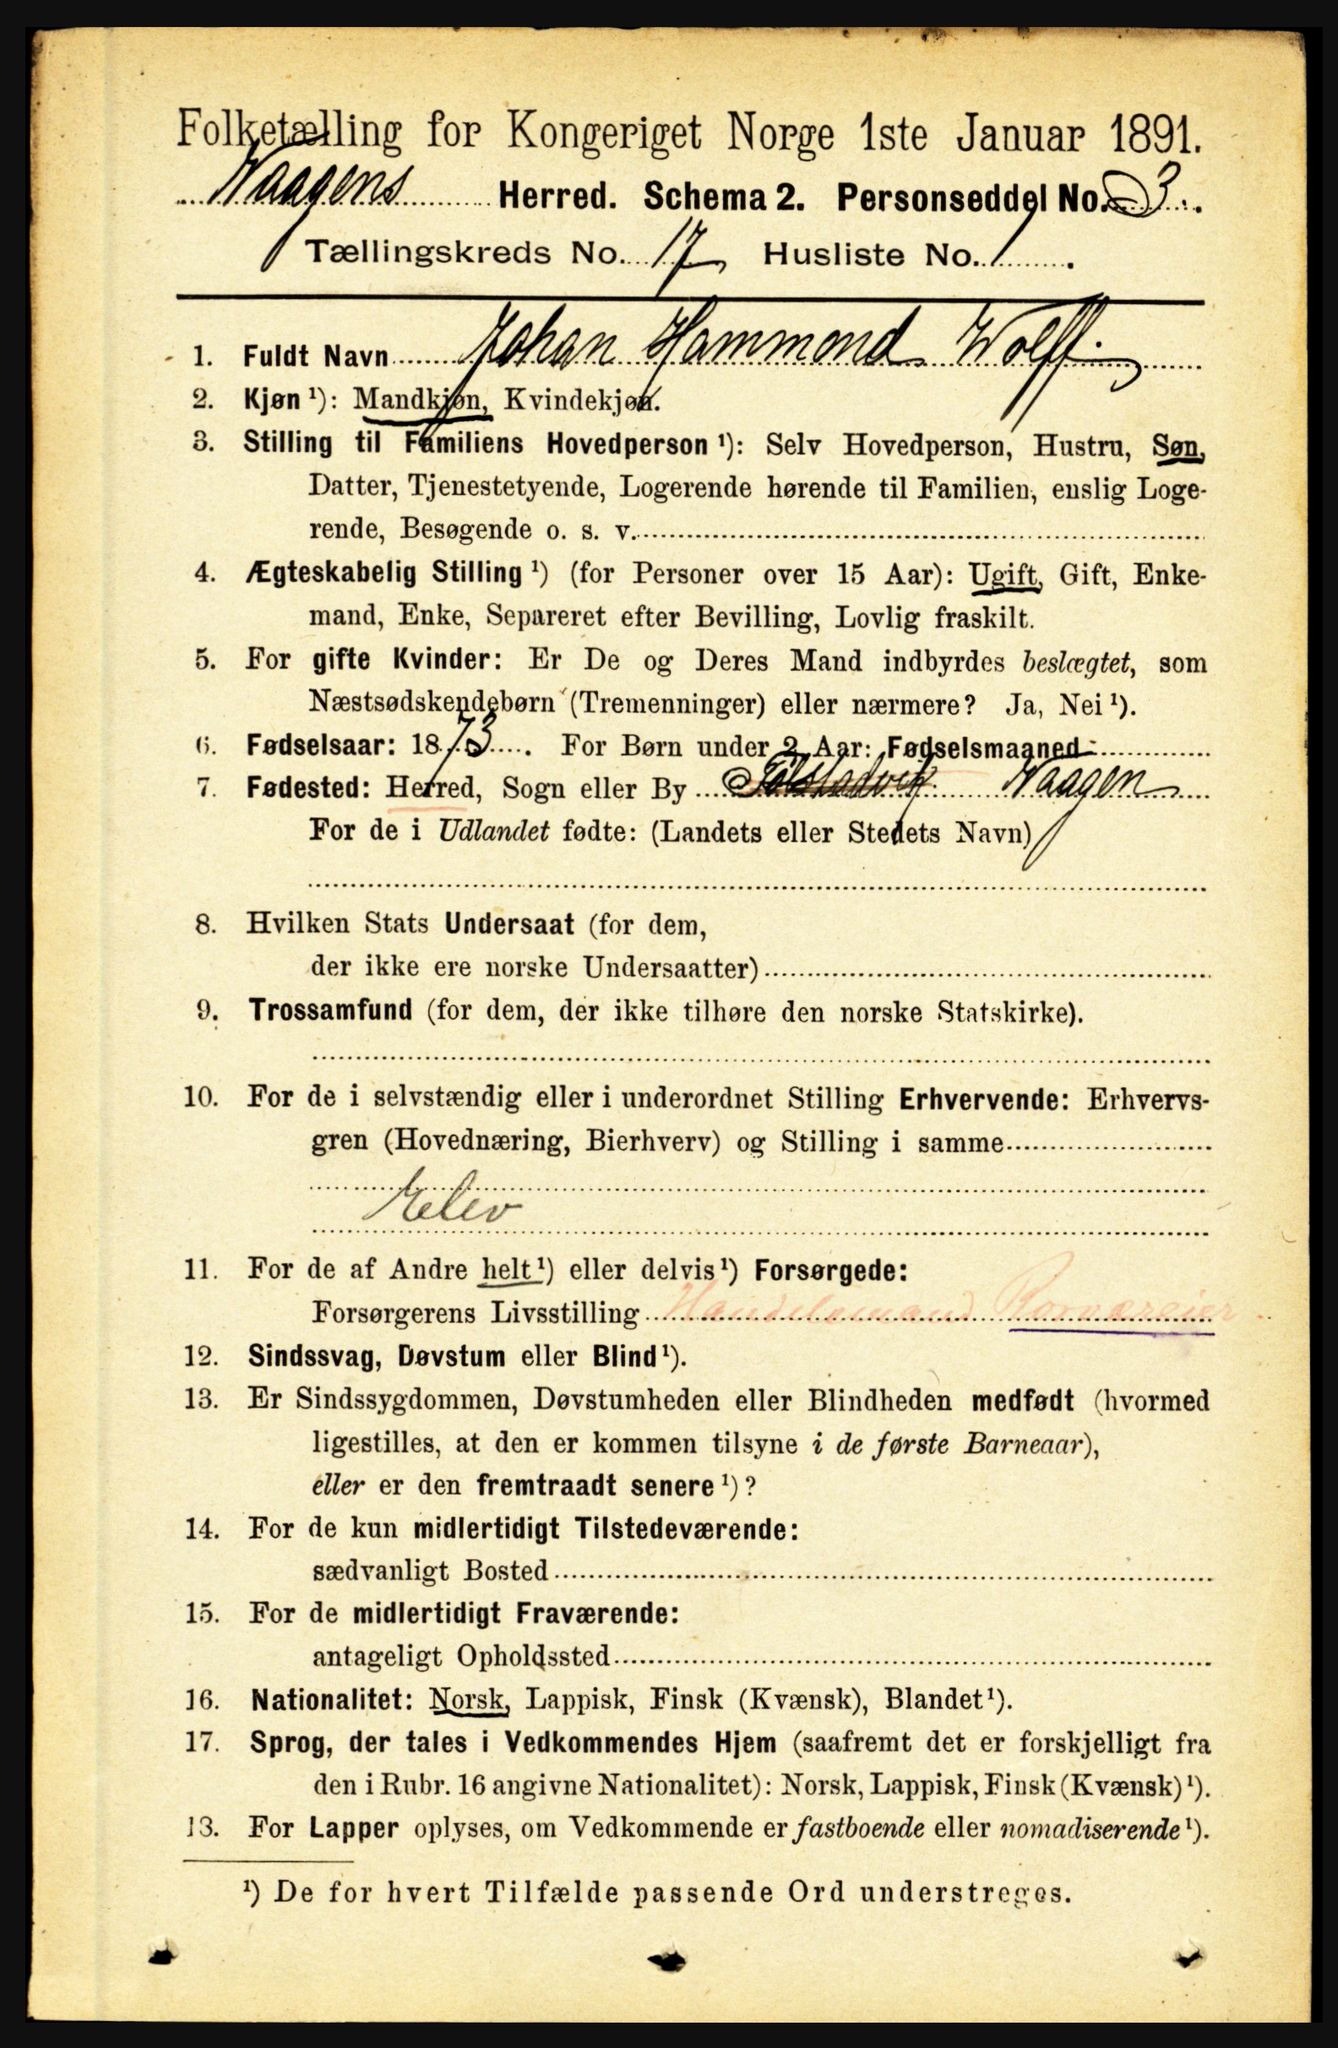 Folketælling for Kongeriget Norge 1ste Januar 1891.
Vaagens Herred. Schema 2. Personseddel No. 3.
Tællingskreds No. 17 Husliste No. 1.
1. Fuldt Navn Johan Hammond Wolff.
2. Kjøn ¹): Mandkjøn, Kvindekjøn.
3. Stilling til Familiens Hovedperson ¹): Selv Hovedperson, Hustru, Søn,
Datter, Tjenestetyende, Logerende hørende til Familien, enslig Loge-
rende, Besøgende o. s. v.
4. Ægteskabelig Stilling ¹) (for Personer over 15 Aar): Ugift, Gift, Enke-
mand, Enke, Separeret efter Bevilling, Lovlig fraskilt.
5. For gifte Kvinder: Er De og Deres Mand indbyrdes beslægtet, som
Næstsødskendebørn (Tremenninger) eller nærmere? Ja, Nei ¹).
6. Fødselsaar: 1873. For Børn under 2 Aar: Fødselsmaaned
7. Fødested: Herred, Sogn eller By Vaagen
For de i Udlandet fødte: (Landets eller Stedets Navn)
8. Hvilken Stats Undersaat (for dem,
der ikke ere norske Undersaatter)
9. Trossamfund (for dem, der ikke tilhøre den norske Statskirke).
10. For de i selvstændig eller i underordnet Stilling Erhvervende: Erhvervs-
gren (Hovednæring, Bierhverv) og Stilling i samme
Elev
11. For de af Andre helt ¹) eller delvis ¹) Forsørgede:
Forsørgerens Livsstilling Handelsmand
12. Sindssvag, Døvstum eller Blind ¹).
13. Er Sindssygdommen, Døvstumheden eller Blindheden medfødt (hvormed
ligestilles, at den er kommen tilsyne i de første Barneaar),
eller er den fremtraadt senere ¹)?
14. For de kun midlertidigt Tilstedeværende:
sædvanligt Bosted
15. For de midlertidigt Fraværende:
antageligt Opholdssted
16. Nationalitet: Norsk, Lappisk, Finsk (Kvænsk), Blandet ¹).
17. Sprog, der tales i Vedkommendes Hjem (saafremt det er forskjelligt fra
den i Rubr. 16 angivne Nationalitet): Norsk, Lappisk, Finsk (Kvænsk) ¹).
13. For Lapper oplyses, om Vedkommende er fastboende eller nomadiserende ¹).
¹) De for hvert Tilfælde passende Ord understreges.